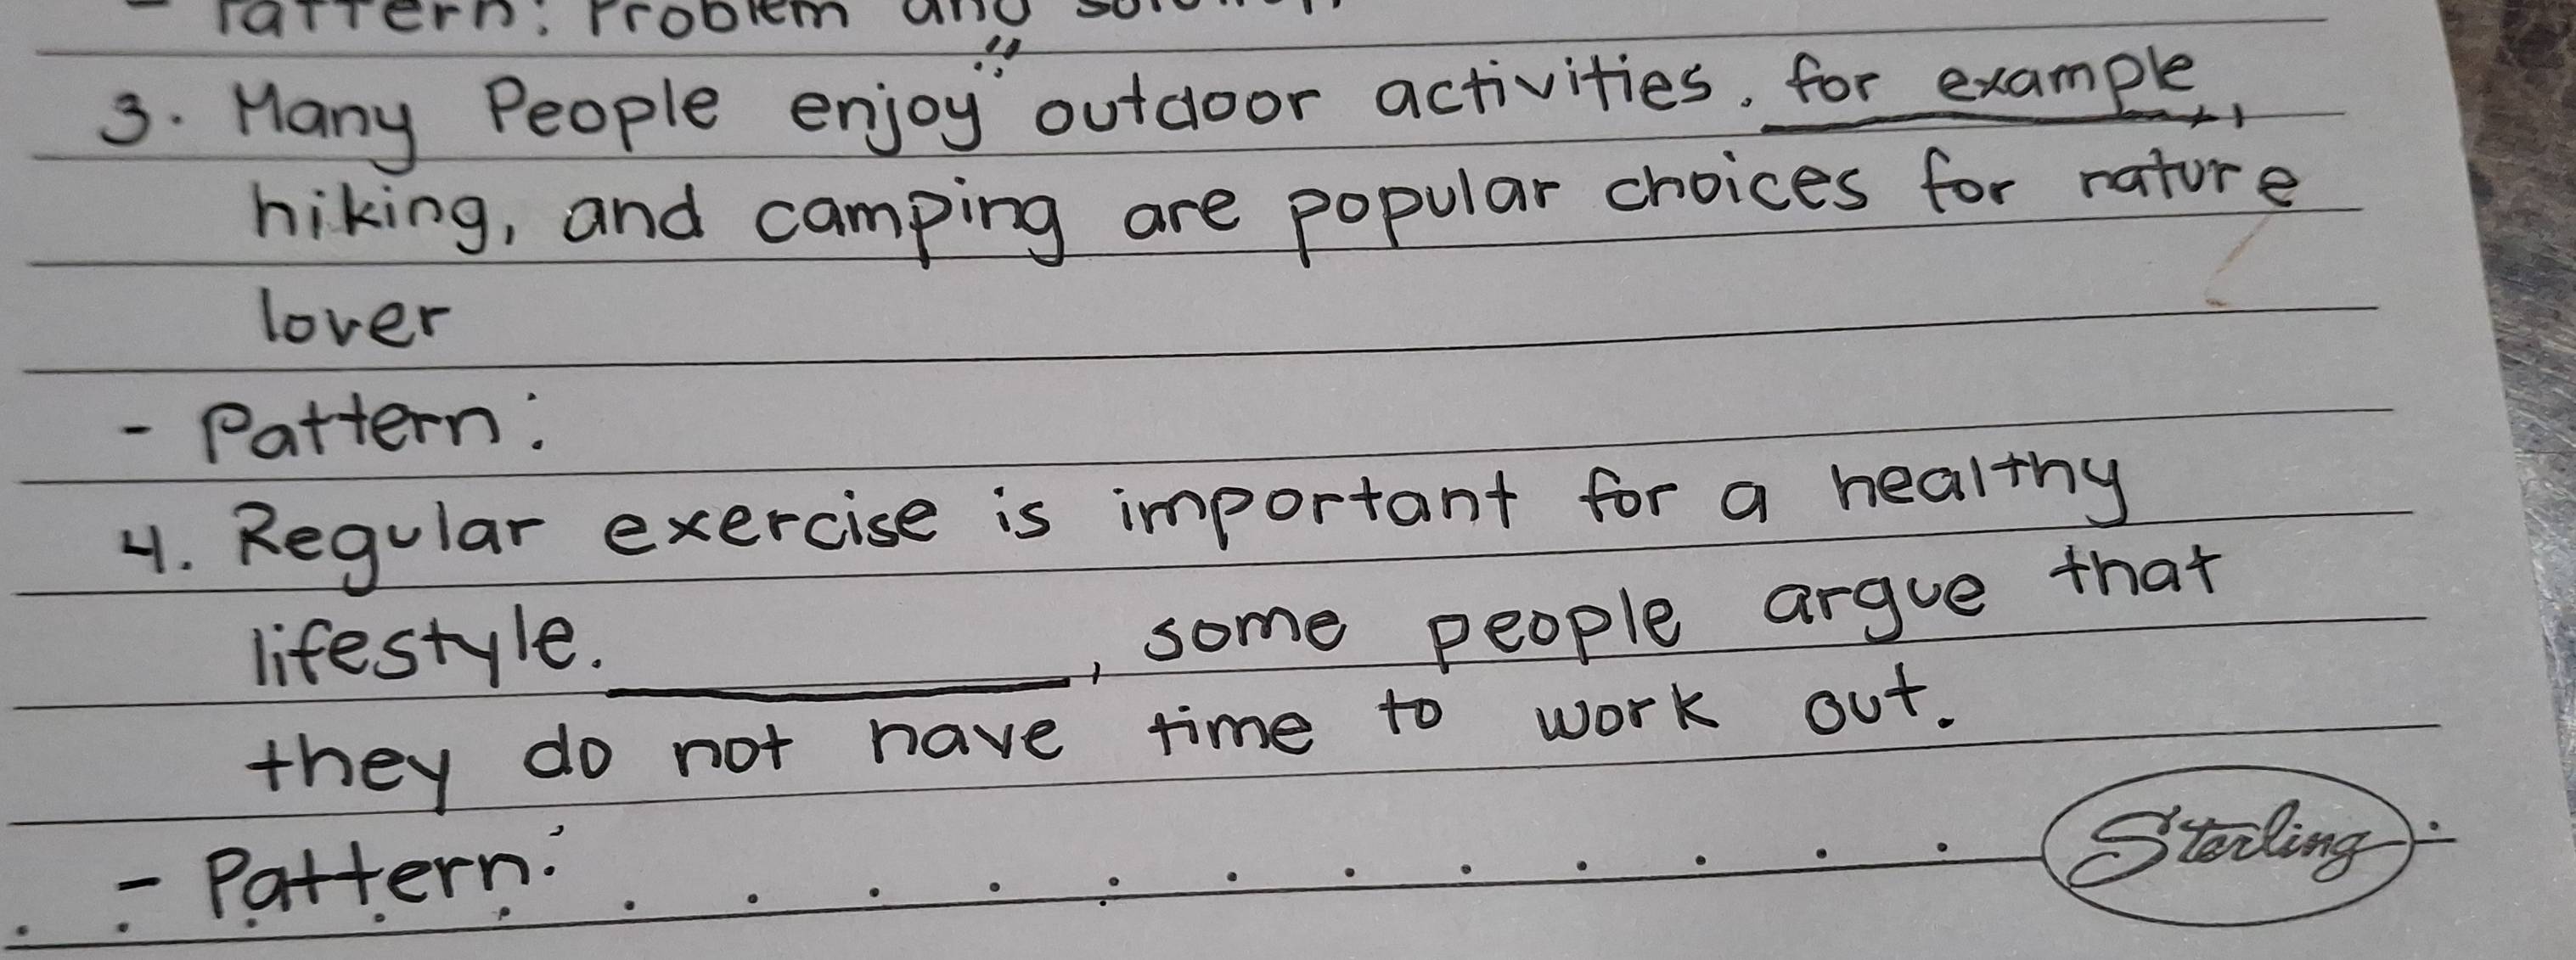 - Pattern: Problem and solution
3. Many People enjoy outdoor activities. for example,
hiking, and camping are popular choices for nature
lover
- Pattern:
4. Regular exercise is important for a healthy
lifestyle. __________, some people argue that
they do not have time to work out.
- Pattern:
Sterling